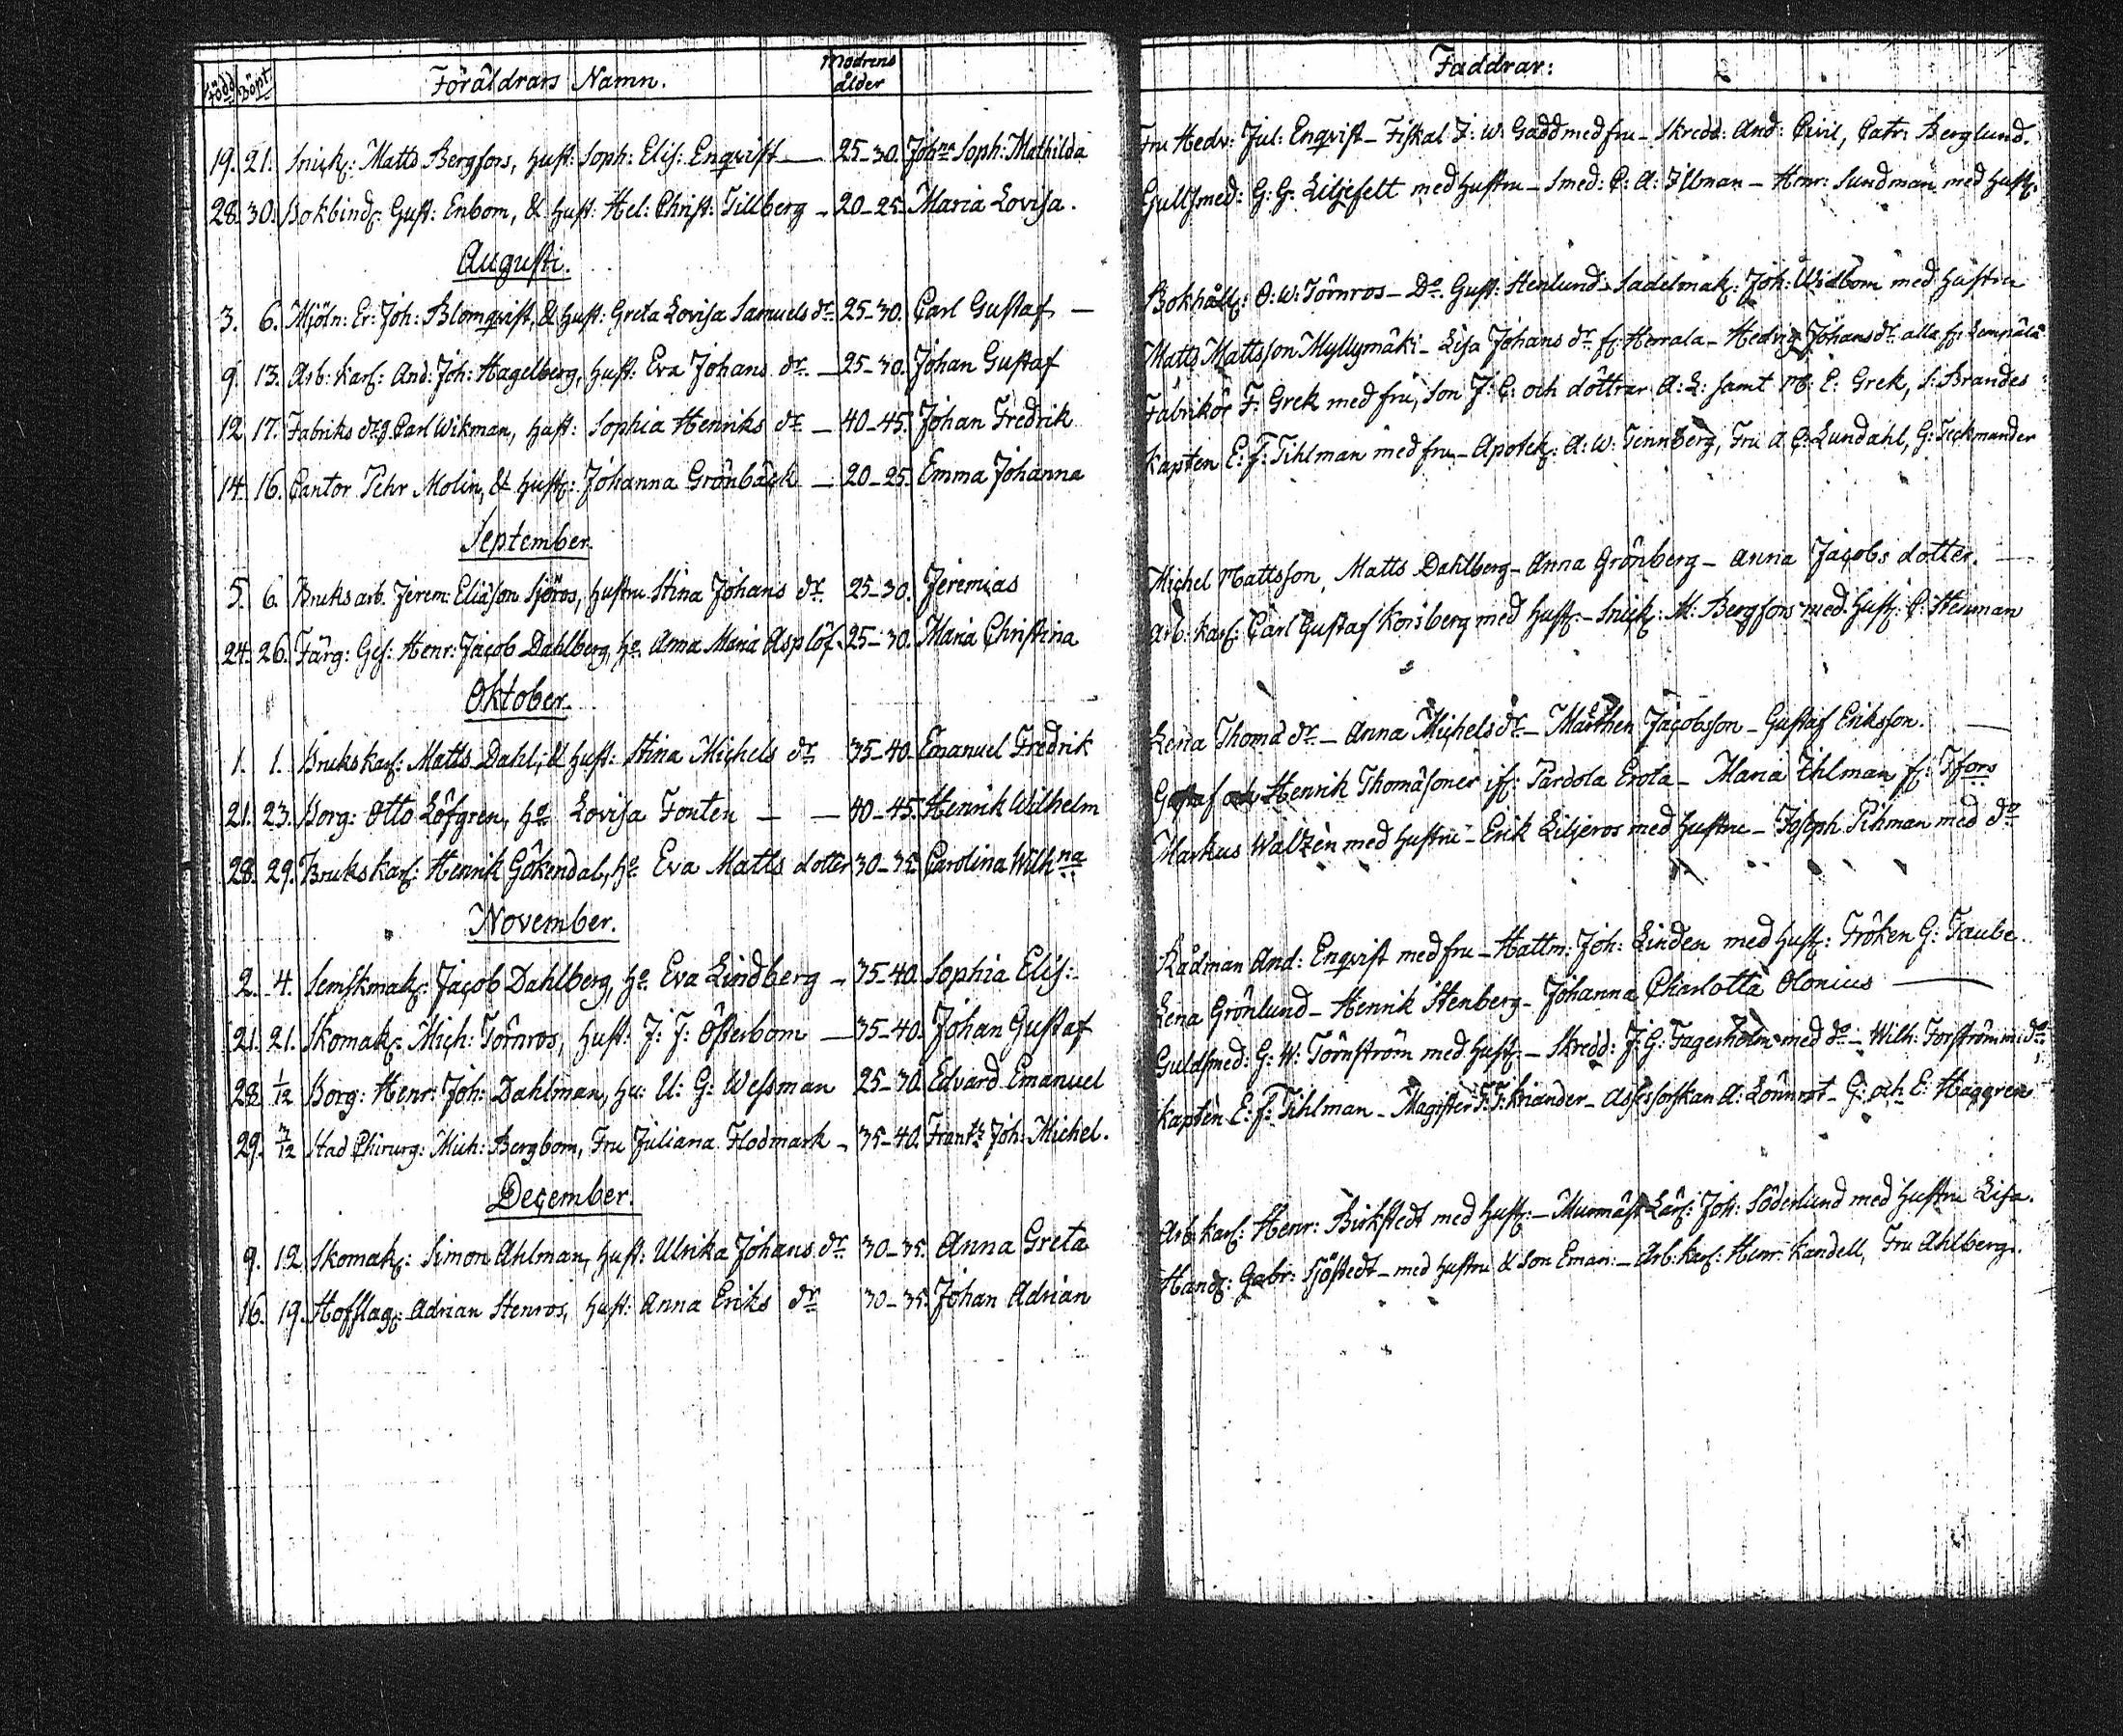 Född Döpt. Föräldrars Namn. Modrens ålder
19. 21. Snick: Matts Bergfors, hust: Soph: Elis: Enqvist — 25-30. Joh:na Soph: Mathilda
28. 30. Bokbind: Gust: Enbom, & hust: Hel: Christ: Tillberg - 20-25. Maria Lovisa.
Augusti.
3. 6. Mjöln: Er: Joh: Blomqvist, & hust: Greta Lovisa Samuels dr. 25-30. Carl Gustaf —
9. 13. Arb: karl: And: Joh: Hagelberg, hust: Eva Johans dr. — 25-30. Johan Gustaf
12. 17. Fabriks Carl Wikman, hust: Sophia Henriks dr — 40-45. Johan Fredrik
14. 16. Cantor Pehr Molin, & hust: Johanna Grönbäck — 20-25. Emma Johanna
September.
5. 6. Bruksarb. Jerem: Eliäson Sjöros, hustru Stina Johans dr. 25-30. Jeremias
24. 26. Färg: Ges: Henr: Jacob Dahlberg, ho. Anna Maria Asplöf. 25-30. Maria Christina
Oktober.
1. 1. Brukskarl: Matts Dahl, & hust: Stina Michels dr 35-40. Emanuel Fredrik
21. 23. Borg: Otto Löfgren, ho Lovisa Fonten — — 40-45. Henrik Wilhelm
28. 29. Brukskarl: Henrik Gökendal, ho Eva Matts dotter 30-35. Carolina Wilhna
November.
2. 4. Semskmak: Jacob Dahlberg, ho. Eva Lindberg - 35-40. Sophia Elis:
21. 21. Skomak: Mich: Törnros, hust: J: J: Österbom — 35-40. Johan Gustaf
28. 1/12 Borg: Henr: Joh: Dahlman, hu: U: G: Wessman 25-30. Edvard Emanuel
29. 3/12 Stad Chirurg: Mich: Bergbom, Fru Juliana Flodmark - 35-40. Frantz Joh: Michel.
December.
9. 12. Skomak: Simon Ahlman, hust: Ulrika Johans dr. 30-35. Anna Greta
16. 19. Hofslag: Adrian Stenros, hust: Anna Eriks dr 30-35. Johan Adrian
Faddrar:
Fru Hedv: Jul: Enqvist - Fiskal J: W: Gadd med fru - Skredd: And: Civil, Catr: Berglund.
Gullsmed: G: G: Liljefelt med hustru - Smed: C: A: Illman - Henr: Sundman med hust:
Bokhåll: O: W: Törnros - Do. Gust: Stenlund - Sadelmak: Joh: Widbom med hustru
Matts Mattsson Myllymäki - Lisa Johans dr fr: Herrala - Hedvig Johans dr. alla fr: Lempäla
Fabrikör F: Grek med fru, son J: C: och döttrar A: L: samt M: C: Grek, S: Brandes
Kapten E: F: Tihlman med fru - Apotek: A: W: Tennberg, Fru A C: Lundahl, G: Teckmander
Michel Mattsson, Matts Dahlberg - Anna Grönberg - Anna Jacobs dotter. —
Arb: karl: Carl Gustaf Korsberg med hust: - Snick: M: Bergfors med hust: C: Stenman
Lena Thoma dr - Anna Michels dr - Mårthen Jacobsson - Gustaf Eriksson. —
Gustaf och Henrik Thomäsoner if: Pardola Erola - Maria Ihlman fr: Tfors
Markus Walzèn med hustru - Erik Liljeros med hustru - Joseph Pihman med do
Rådman And: Enqvist med fru - Hattm: Joh: Linden med hust: Fröken G: Taube.
Lena Grönlund - Henrik Stenberg - Johanna Charlotta Olonius —
Guldsmed: G: W: Törnström med hust: - Skredd: J: G: Fagerholm med do - Wilh: Forström m: do
Kapten E: F: Tihlman - Magister F: F: Kriander - Assessorskan A: Lönnrot - G: och E: Haggren
Arb: karl: Henr: Birkstedt med hust: - Murmäst: Lärl: Joh: Söderlund med hustru Lisa.
Handl: Gabr: Sjöstedt - med hustru & son Eman: - Arb: karl: Henr: Kandell, Fru Ahlberg.